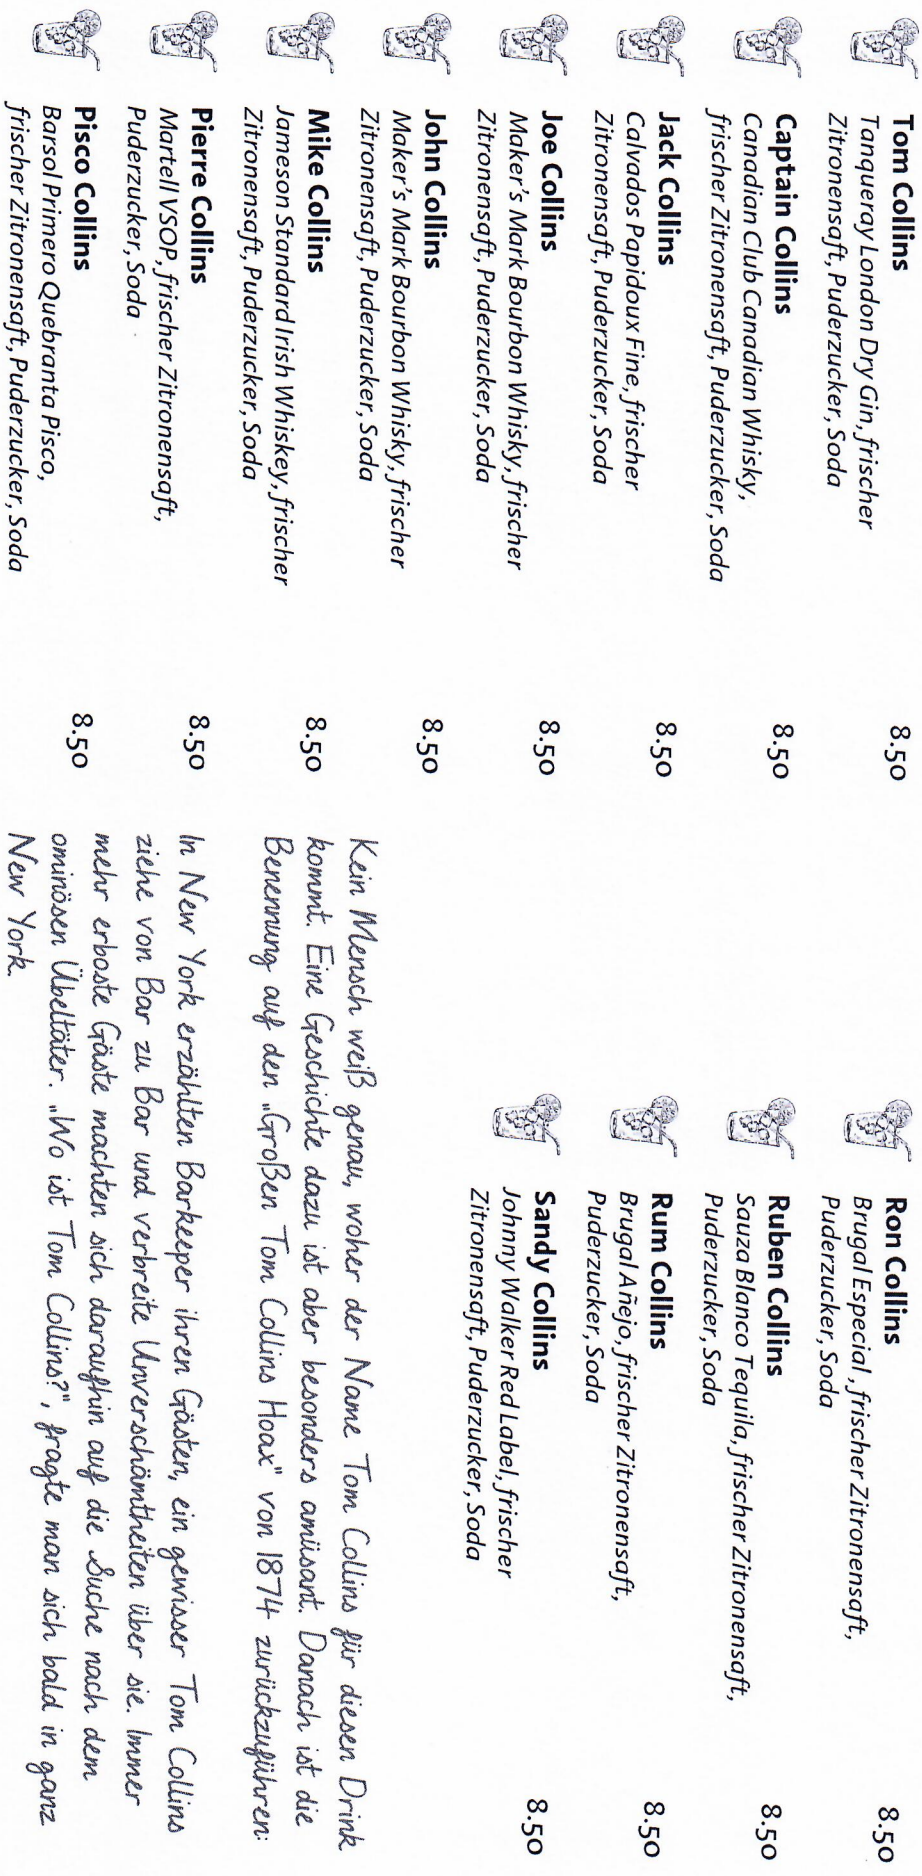 Tom Collins 8.50
Tanqueray London Dry Gin, frischer
Zitronensaft, Puderzucker, Soda
Captain Collins 8.50
Canadian Club Canadian Whisky,
frischer Zitronensaft, Puderzucker, Soda
Jack Collins 8.50
Calvados Papidoux Fine, frischer
Zitronensaft, Puderzucker, Soda
Joe Collins 8.50
Maker's Mark Bourbon Whisky, frischer
Zitronensaft, Puderzucker, Soda
John Collins 8.50
Maker's Mark Bourbon Whisky, frischer
Zitronensaft, Puderzucker, Soda
Mike Collins 8.50
Jameson Standard Irish Whiskey, frischer
Zitronensaft, Puderzucker, Soda
Pierre Collins 8.50
Martell VSOP, frischer Zitronensaft,
Puderzucker, Soda
Pisco Collins 8.50
Barsol Primero Quebranta Pisco,
frischer Zitronensaft, Puderzucker, Soda
Ron Collins 8.50
Brugal Especial, frischer Zitronensaft,
Puderzucker, Soda
Ruben Collins 8.50
Sauza Blanco Tequila, frischer Zitronensaft,
Puderzucker, Soda
Rum Collins 8.50
Brugal Añejo, frischer Zitronensaft,
Puderzucker, Soda
Sandy Collins 8.50
Johnny Walker Red Label, frischer
Zitronensaft, Puderzucker, Soda
Kein Mensch weiß genau, woher der Name Tom Collins für diesen Drink
kommt. Eine Geschichte dazu ist aber besonders amüsant. Danach ist die
Benennung auf den „Großen Tom Collins Hoax" von 1874 zurückzuführen:
In New York erzählten Barkeeper ihren Gästen, ein gewisser Tom Collins
ziehe von Bar zu Bar und verbreite Unverschämtheiten über sie. Immer
mehr erboste Gäste machten sich daraufhin auf die Suche nach dem
ominösen Übeltäter. „Wo ist Tom Collins?", fragte man sich bald in ganz
New York.